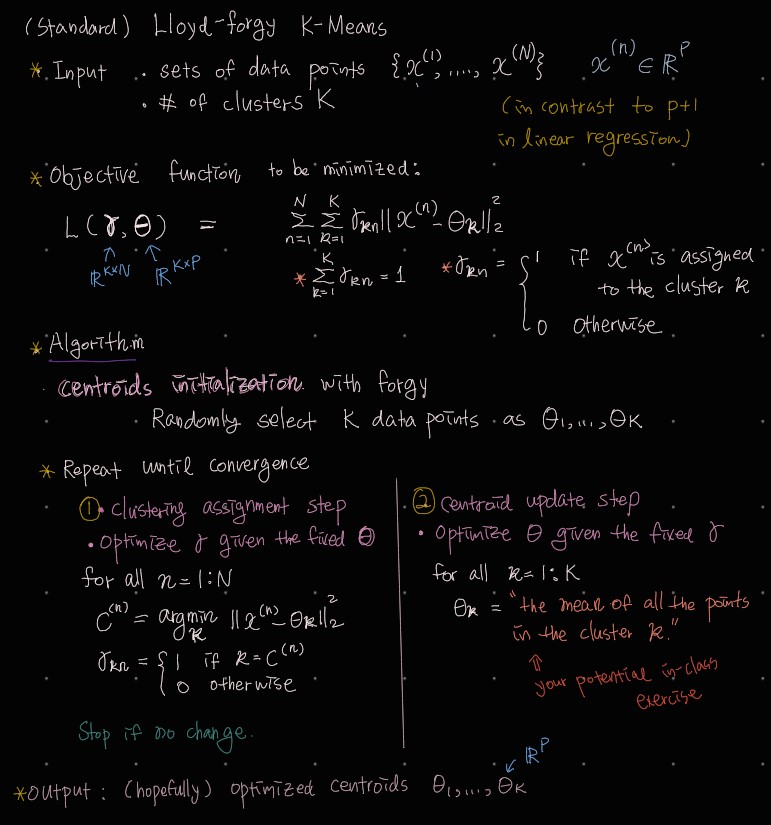 (Standard) Lloyd-forgy K-Means
* Input · sets of data points {x^(1), ...., x^(N)} x^(n) ∈ ℝ^P
· # of clusters K
(in contrast to p+1
in linear regression)
* Objective function to be minimized:
L(γ, θ) = Σ_{n=1}^{N} Σ_{k=1}^{K} γ_kn ||x^(n) - θ_k||_2^2
↑ ℝ^{K×N} ↑ ℝ^{K×P}
* Σ_{k=1}^{K} γ_kn = 1
* γ_kn = { 1 if x^(n) is assigned
to the cluster k
0 otherwise
* Algorithm
· centroids initialization with forgy
Randomly select K data points as θ_1, ..., θ_K
* Repeat until convergence
① · clustering assignment step
· optimize γ given the fixed θ
for all n = 1:N
C^(n) = argmin_k ||x^(n) - θ_k||_2^2
γ_kn = { 1 if k = C^(n)
0 otherwise
Stop if no change.
② centroid update step
· optimize θ given the fixed γ
for all k = 1:K
θ_k = "the mean of all the points
in the cluster k."
⇑
your potential in-class
exercise
* OUTPUT : (hopefully) optimized centroids θ_1, ..., θ_K ↙ ℝ^P